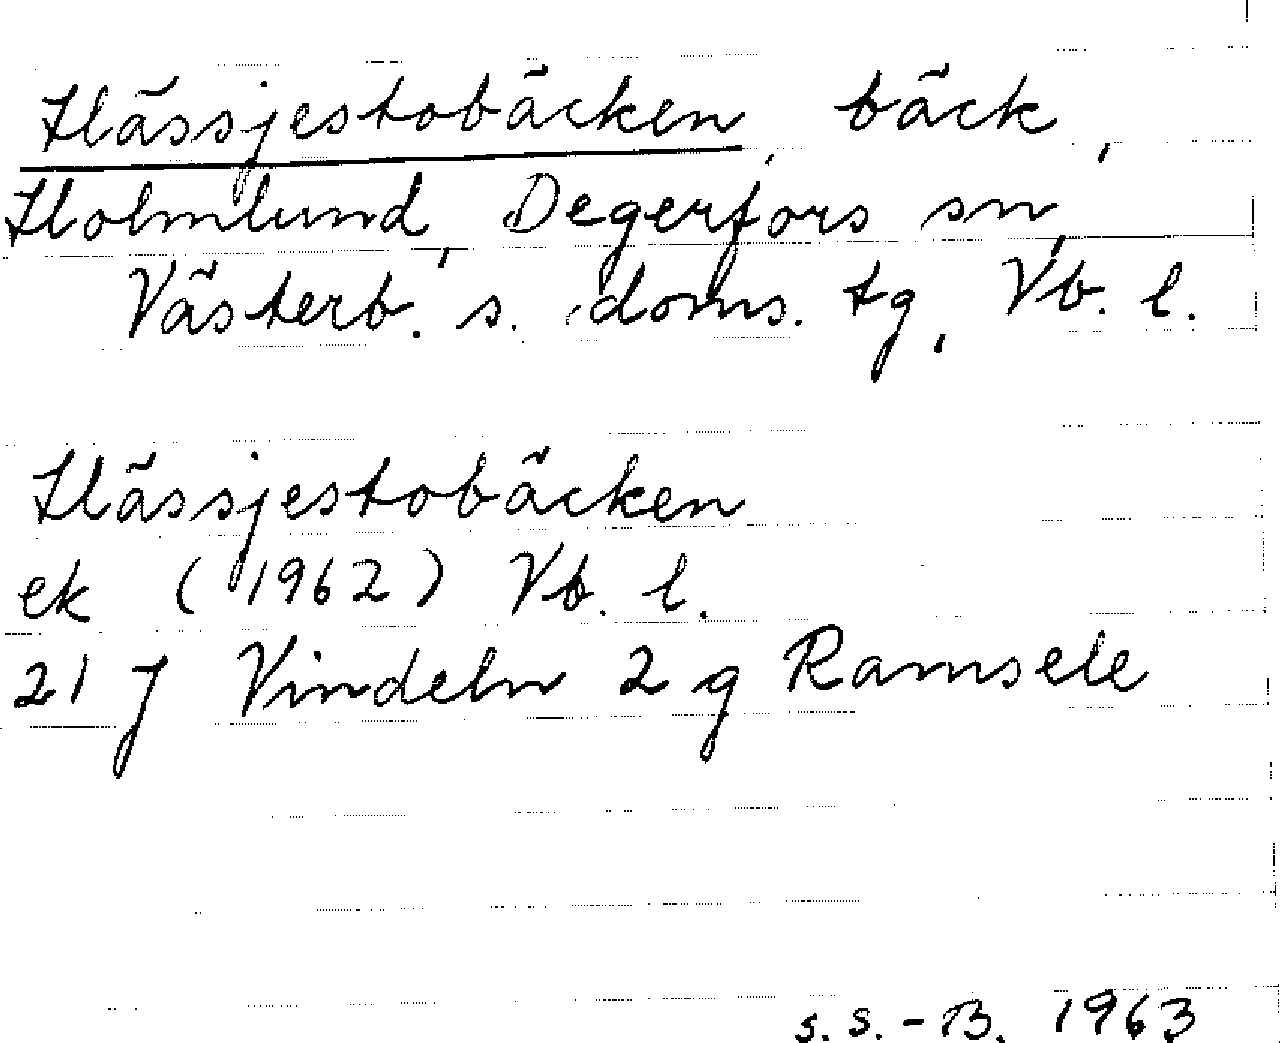 Hässjestobäcken, bäck,
Holmlund, Degerfors sn,
Västerb. s. doms. tg, Vb. l.
Hässjestobäcken
ek (1962) Vb. l.
21 J Vindeln 2 g Ramsele
s. s. - B. 1963